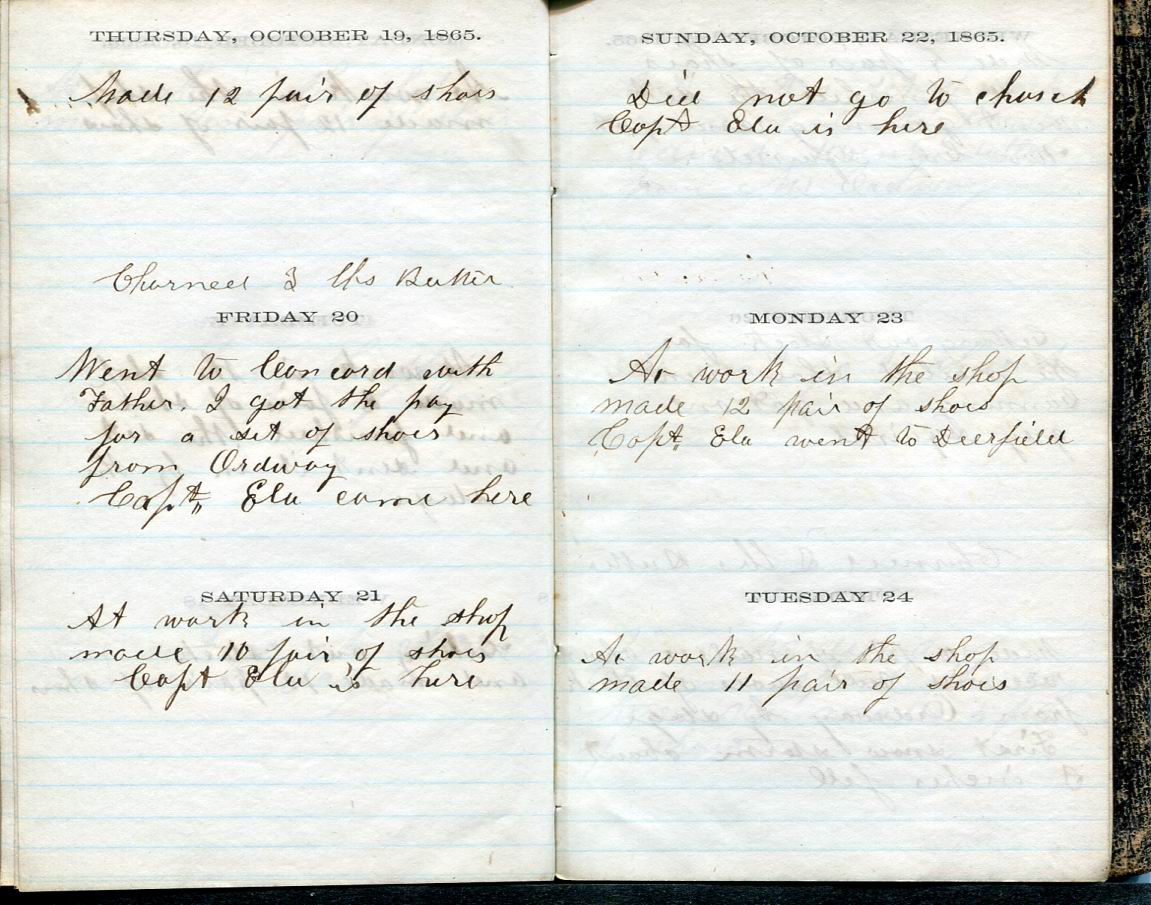 THURSDAY, OCTOBER 19, 1865.
Made 12 pair of shoes
Churned 3 lbs Butter
FRIDAY 20
Went to Concord with
Father. I got the pay
for a set of shoes
from Ordway
Capt, Ela came here
SATURDAY 21
At work in the shop
made 10 pair of shoes
Capt Ela is here
SUNDAY, OCTOBER 22, 1865.
Did not go to church
Capt Ela is here
MONDAY 23
At work in the shop
made 12 pair of shoes
Capt, Ela went to Deerfield
TUESDAY 24
At work in the shop
made 11 pair of shoes